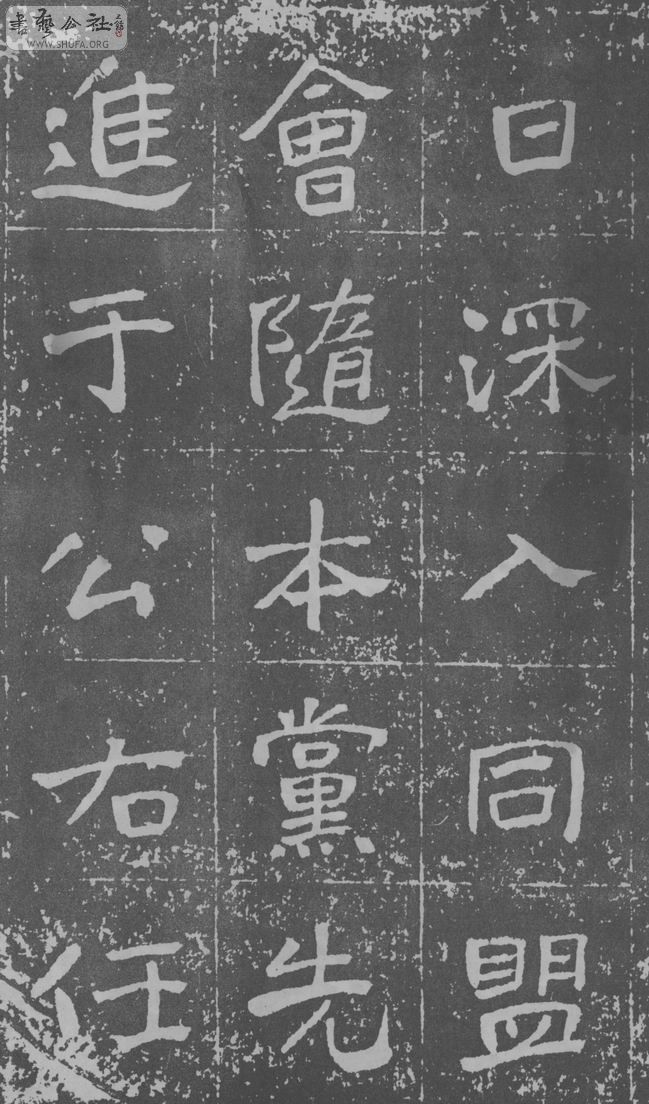 日深入同盟
會隨本黨先
進于公右任
書藝公社
WWW.SHUFA.ORG